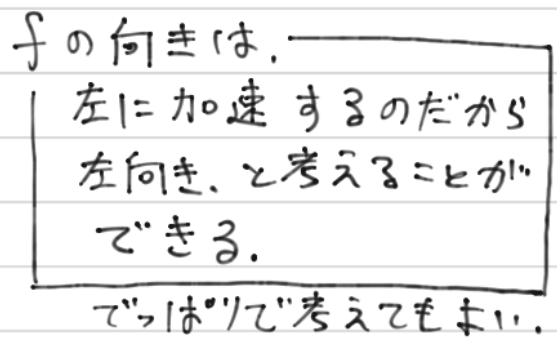 fの向きは、
左に加速するのだから
左向き、と考えることが
できる.
でっぱりで考えてもよい.